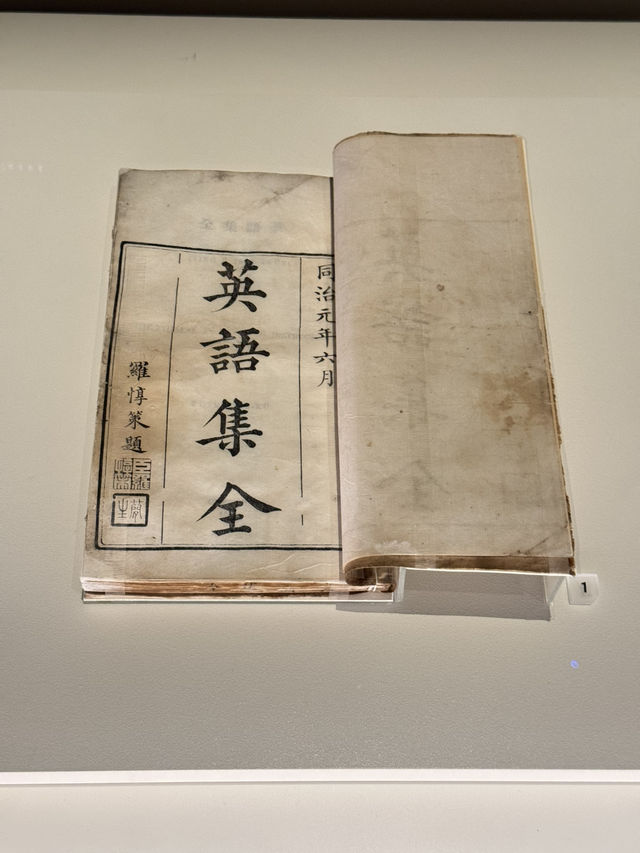 同治元年六月
英語集全
羅惇䇿題
1